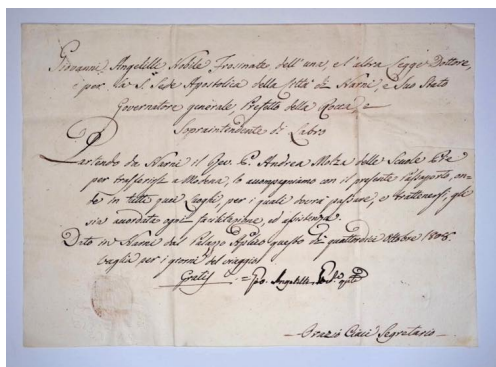 Giovanni Angelilli Nobile Frosinate dell'una, e l'altra Legge Dottore,
e per la S. Sede Apostolica della Città di Narni, e suo Stato
Governatore generale, Prefetto della Rocca, e
Sopraintendente di Libro
Partendo da Narni il Gio: C. Andrea Molza delle Scuole Pie
per trasferirsi a Modena, lo accompagniamo con il presente Passaporto, on-
de in tutti quei Luoghi, per i quali dovrà passare, e trattenersi, gli
sia accordata ogni facilitazione, ed assistenza.
Dato in Narni dal Palazzo Aplico questo dì quattordici Ottobre 1808.
Vaglia per i giorni del viaggio
Gratis = Gio. Angelilli
Orazio Ciuci Segretario